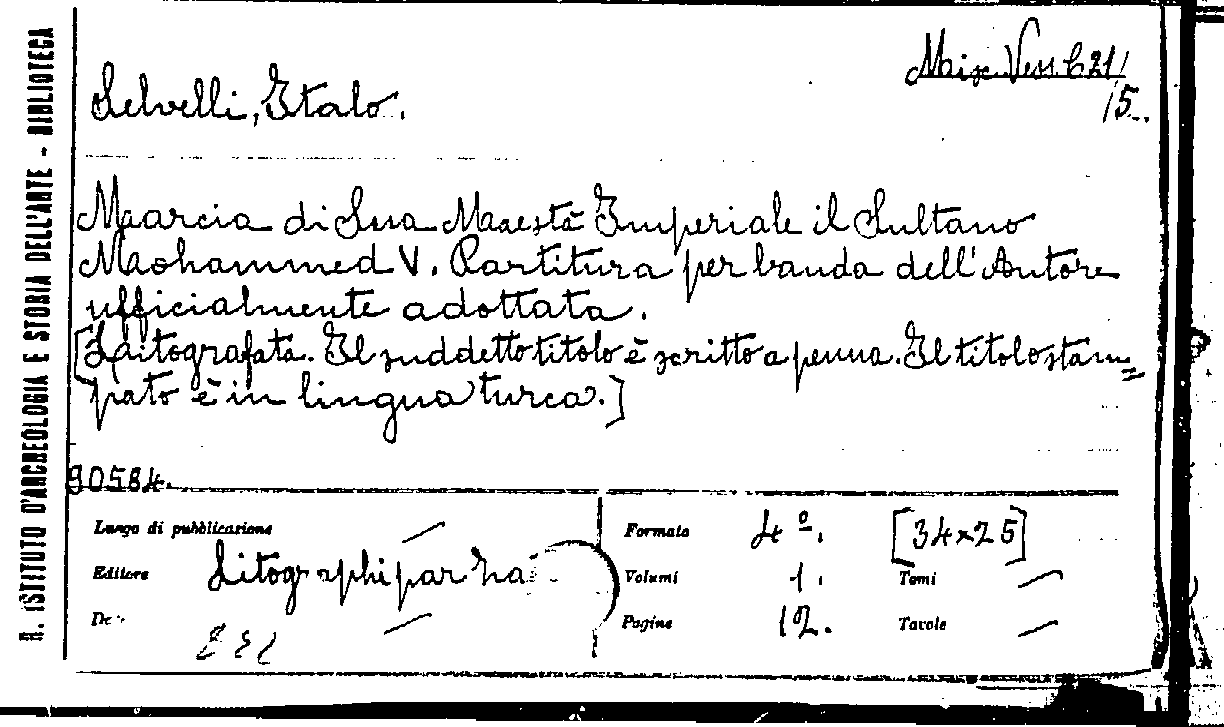 R. ISTITUTO D'ARCHEOLOGIA E STORIA DELL'ARTE - BIBLIOTECA
Misc. Vess. C 21/
15.
Selvelli, Italo.
Marcia di Sua Maestà Imperiale il Sultano
Mohammed V. Partitura per banda dell'Autore
ufficialmente adottata.
[Litografata. Il suddetto titolo è scritto a penna. Il titolo stam=
pato è in lingua turca.]
90584.
Luogo di pubblicazione —
Editore
Formato 4º. [34x25]
Volumi 1. Tomi —
Pagine 12. Tavole —